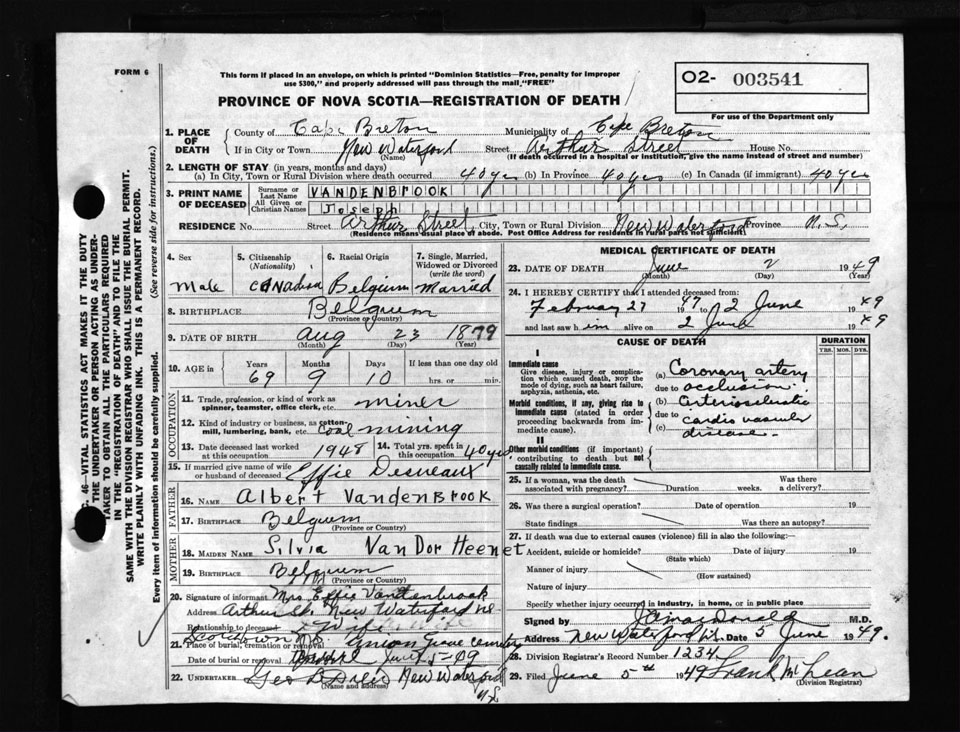 FORM 6
This form if placed in an envelope, on which is printed "Dominion Statistics—Free, penalty for improper
use $300," and properly addressed will pass through the mail "FREE"
02- 003541
PROVINCE OF NOVA SCOTIA—REGISTRATION OF DEATH
For use of the Department only
1. PLACE OF DEATH County of Cape Breton Municipality of Cape Breton
If in City or Town New Waterford (Name) Street Arthur Street House No.
(If death occurred in a hospital or institution, give the name instead of street and number)
2. LENGTH OF STAY (in years, months and days)
(a) In City, Town or Rural Division where death occurred 40 yrs (b) In Province 40 yrs (c) In Canada (if immigrant) 40 yrs
3. PRINT NAME OF DECEASED Surname or Last Name VANDENBROOK
All Given or Christian Names Joseph
RESIDENCE No. Street Arthur Street, City, Town or Rural Division New Waterford Province N.S.
(Residence means usual place of abode. Post Office Address for residents in rural parts not sufficient)
4. Sex Male
5. Citizenship (Nationality) Canadian
6. Racial Origin Belgium
7. Single, Married, Widowed or Divorced (write the word) Married
8. BIRTHPLACE Belgium
(Province or Country)
9. DATE OF BIRTH Aug 23 1879
(Month) (Day) (Year)
10. AGE in Years 69 Months 9 Days 10 If less than one day old
hrs. or min.
OCCUPATION
11. Trade, profession, or kind of work as spinner, teamster, office clerk, etc. miner
12. Kind of industry or business, as cotton-mill, lumbering, bank, etc. coal mining
13. Date deceased last worked at this occupation 1948 14. Total yrs. spent in this occupation 40 yrs
15. If married give name of wife or husband of deceased Effie Desneaux
FATHER
16. NAME Albert VandenBrook
17. BIRTHPLACE Belgium
(Province or Country)
MOTHER
18. MAIDEN NAME Silvia Van Dor Heenet
19. BIRTHPLACE Belgium
(Province or Country)
20. Signature of informant Mrs Effie Vandenbrook
Address Arthur St. New Waterford NS
Relationship to deceased Wife
Scotchtown N.S.
21. Place of burial, cremation or removal Union Grove Cemetery
Date of burial or removal June 5-49
22. UNDERTAKER Geo B New Waterford
(Name and address) N.S.
MEDICAL CERTIFICATE OF DEATH
23. DATE OF DEATH June 2 1949
(Month) (Day) (Year)
24. I HEREBY CERTIFY that I attended deceased from:
February 27 1947 to 2 June 1949
and last saw him alive on 2 June 1949
CAUSE OF DEATH DURATION
YRS. MOS. DYS.
I
Immediate cause
Give disease, injury or complication which caused death, NOT the mode of dying, such as heart failure, asphyxia, asthenia, etc.
(a) Coronary artery
due to occlusion
Morbid conditions, if any, giving rise to immediate cause (stated in order proceeding backwards from immediate cause).
(b) Arteriosclerotic
due to cardio vascular
(c) disease
II
Other morbid conditions (if important) contributing to death but not causally related to immediate cause.
25. If a woman, was the death associated with pregnancy? Duration weeks. Was there a delivery?
26. Was there a surgical operation? Date of operation 19
State findings Was there an autopsy?
27. If death was due to external causes (violence) fill in also the following:
Accident, suicide or homicide? Date of injury 19
(State which)
Manner of injury
(How sustained)
Nature of injury
Specify whether injury occurred in industry, in home, or in public place
Signed by Macdonald M.D.
Address New Waterford Date 5 June 1949.
28. Division Registrar's Record Number 1234
29. Filed June 5th 1949 Frank McLean
(Division Registrar)
C. 46—VITAL STATISTICS ACT MAKES IT THE DUTY
OF THE UNDERTAKER OR PERSON ACTING AS UNDER-
TAKER TO OBTAIN ALL THE PARTICULARS REQUIRED
IN THE "REGISTRATION OF DEATH" AND TO FILE THE
SAME WITH THE DIVISION REGISTRAR WHO SHALL ISSUE THE BURIAL PERMIT.
WRITE PLAINLY WITH UNFADING INK. THIS IS A PERMANENT RECORD.
Every item of information should be carefully supplied. (See reverse side for instructions.)